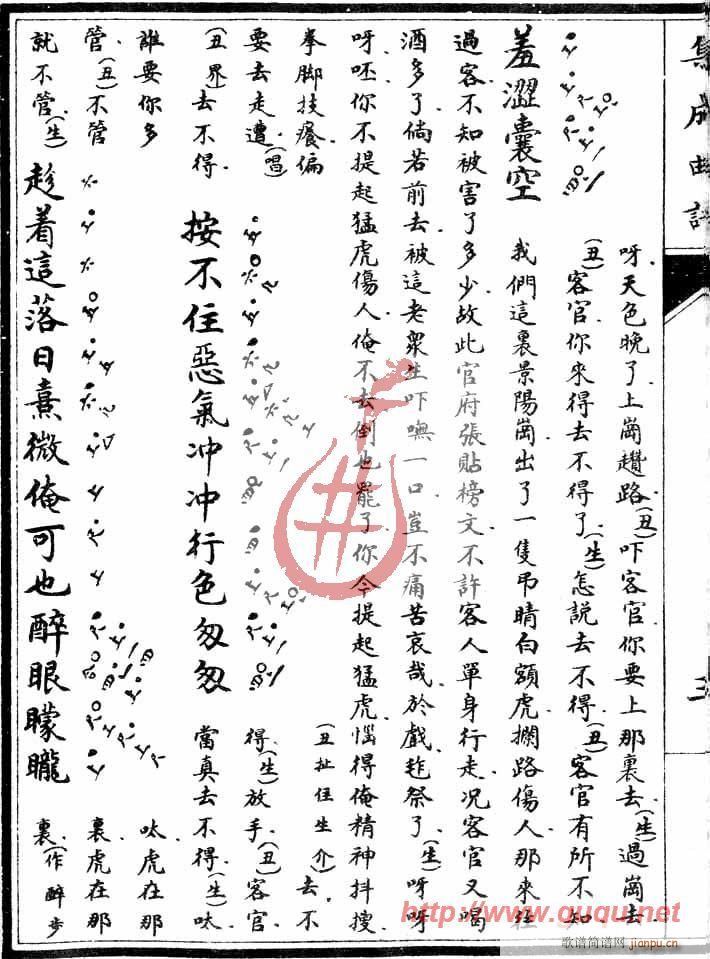 集成曲譜
三
羞澀囊空
呀天色晚了上崗趲路(丑)吓客官你要上那裏去(生)過崗去
(丑)客官你來得去不得了(生)怎説去不得(丑)客官有所不知
我們這裏景陽崗出了一隻吊睛白額虎攔路傷人那來往
過客不知被害了多少故此官府張貼榜文不許客人單身行走况客官又喝
酒多了倘若前去被這老衆生吓嘸一口豈不痛苦哀哉於戲祚祭了(生)呀呀
呀呸你不提起猛虎傷人俺不去倒也罷了你今提起猛虎惱得俺精神抖擻
拳脚技癢偏
要去走遭(唱)
(丑界)去不得
按不住惡氣冲冲行色匆匆
(丑扯住生介)去不
得(生)放手(丑)客官
當真去不得(生)呔
誰要你多
管(丑)不管
就不管(生)
趁着這落日熹微俺可也醉眼矇矓
呔虎在那
裏虎在那
裏(作醉步
http://www.guqu.net
歌谱简谱网
jianpu.cn